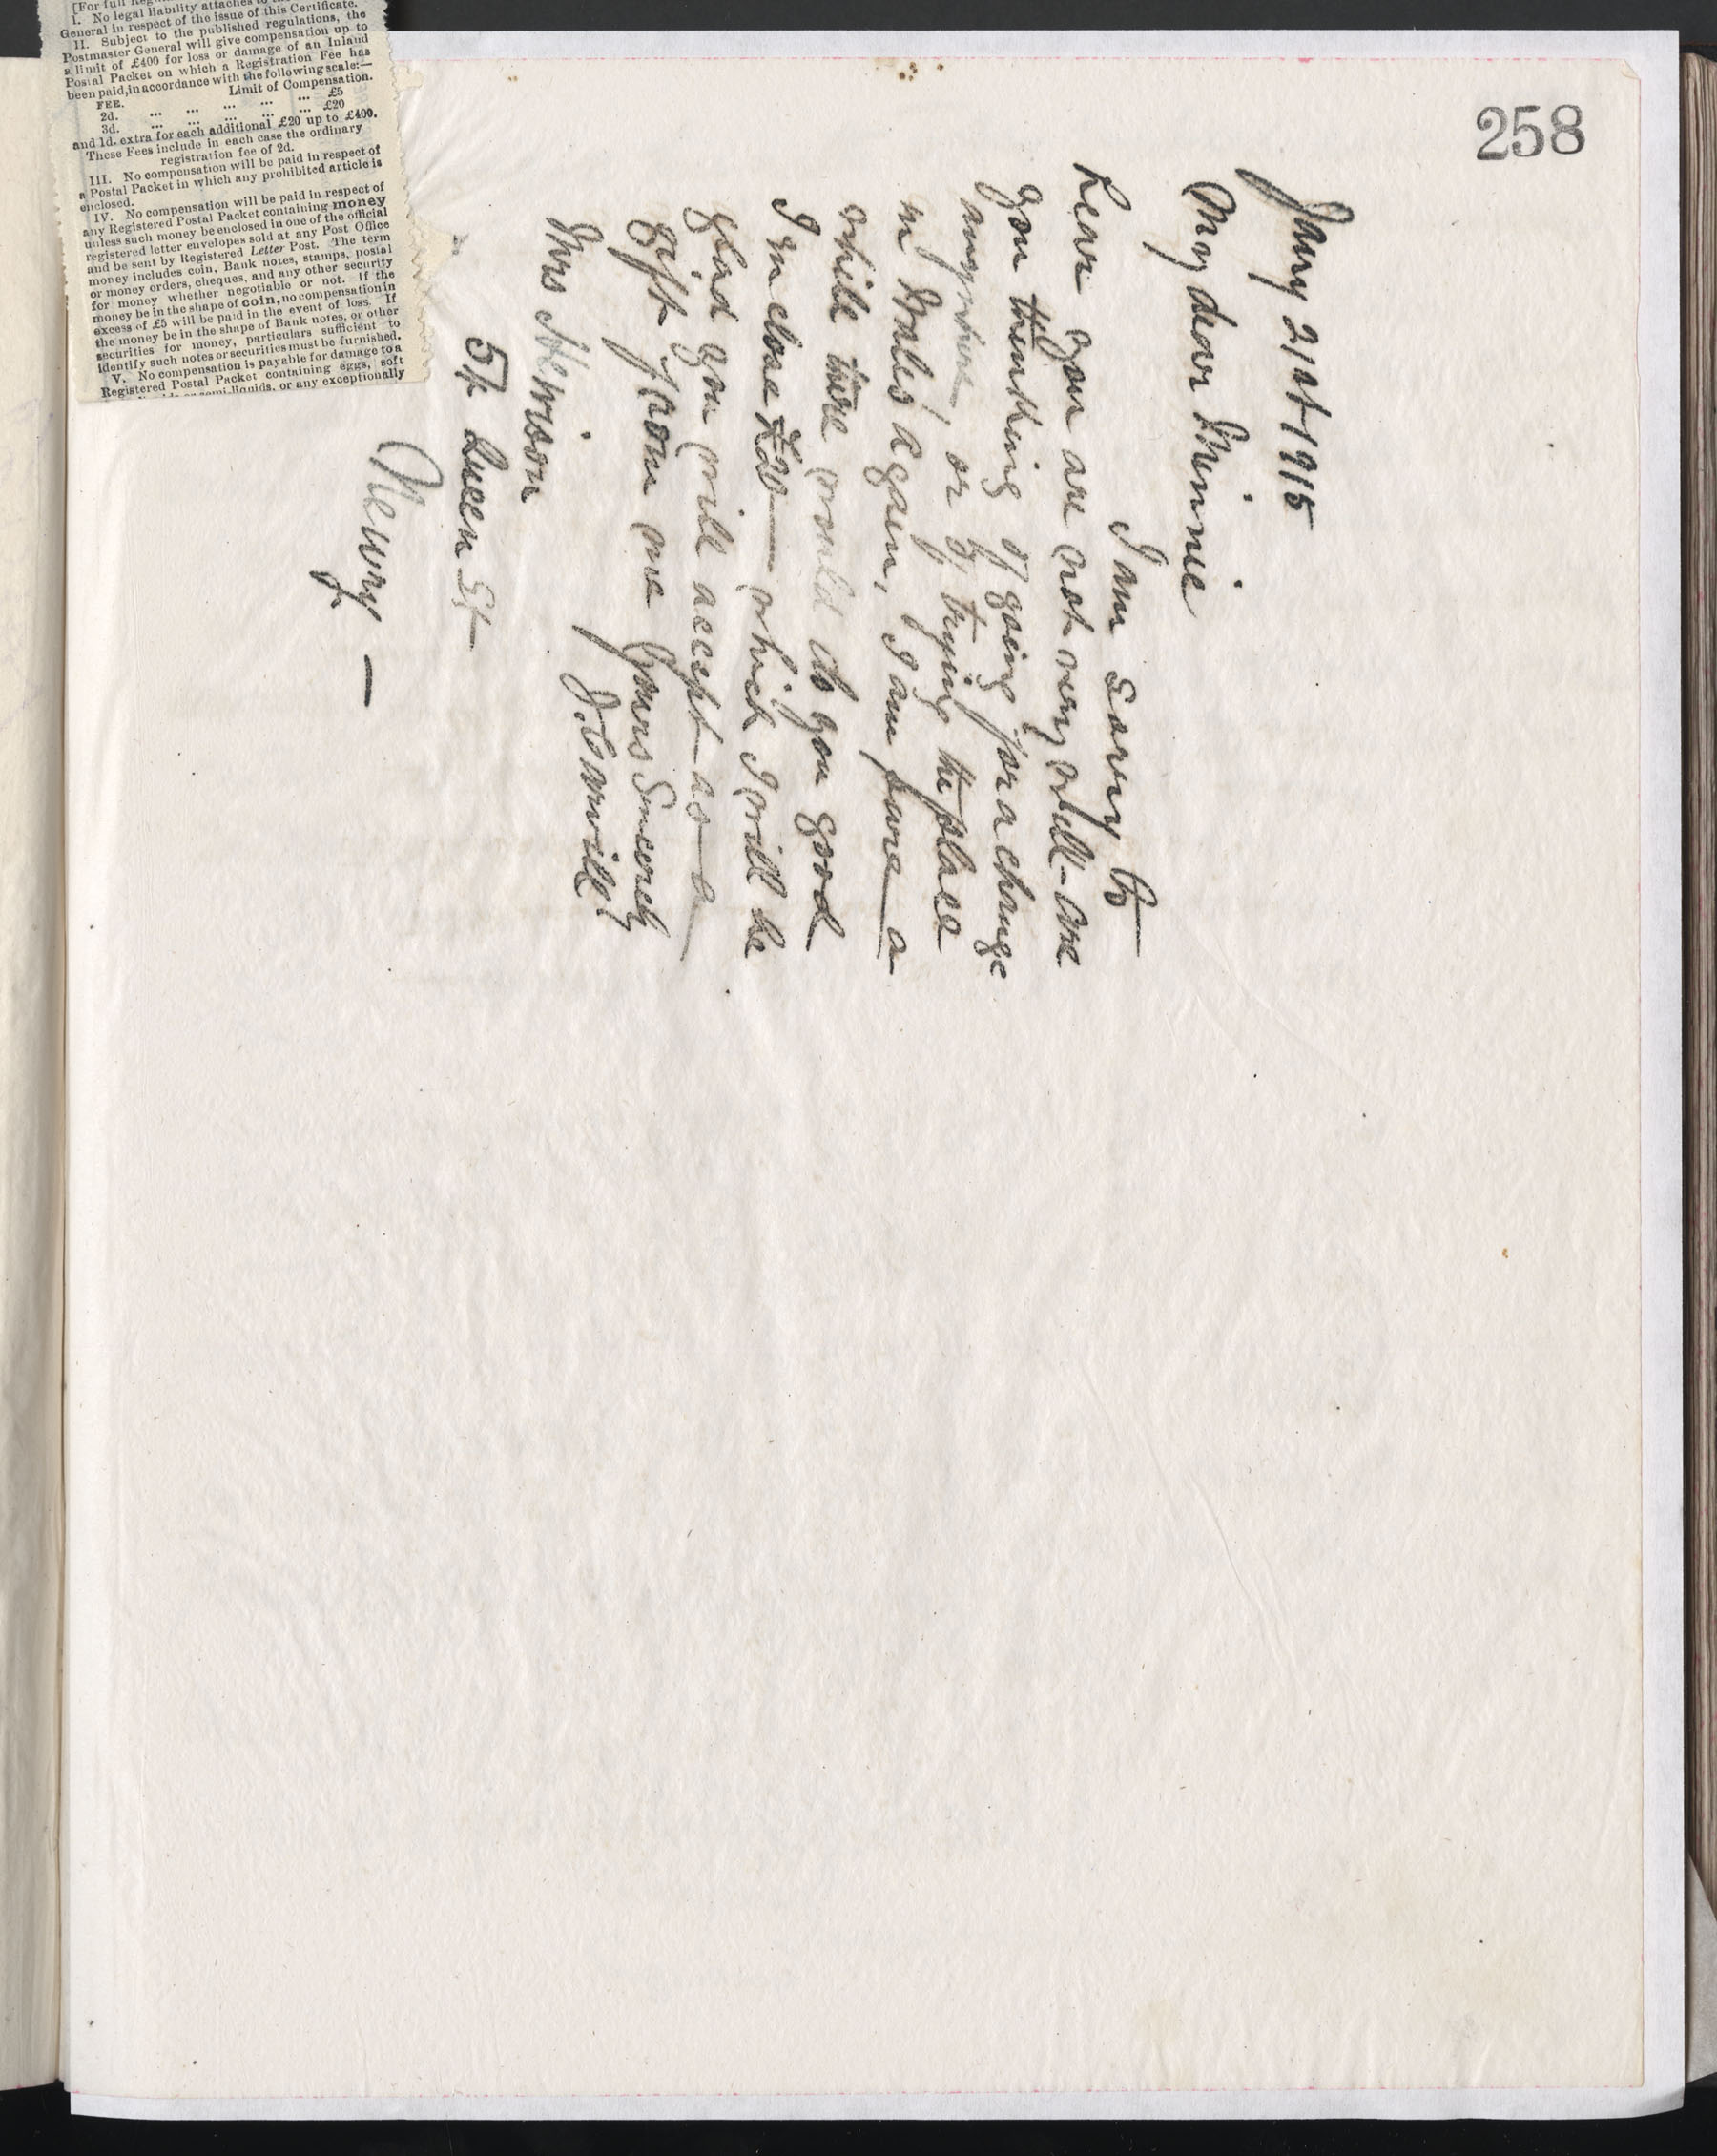 258
[For full
I. No legal liability attaches to the
General in respect of the issue of this Certificate.
II. Subject to the published regulations, the
Postmaster General will give compensation up to
a limit of £400 for loss or damage of an Inland
Postal Packet on which a Registration Fee has
been paid, in accordance with the following scale:—
FEE. Limit of Compensation.
2d. ... ... ... ... ... £5
3d. ... ... ... ... ... £20
and 1d. extra for each additional £20 up to £400.
These Fees include in each case the ordinary
registration fee of 2d.
III. No compensation will be paid in respect of
a Postal Packet in which any prohibited article is
enclosed.
IV. No compensation will be paid in respect of
any Registered Postal Packet containing money
unless such money be enclosed in one of the official
registered letter envelopes sold at any Post Office
and be sent by Registered Letter Post. The term
money includes coin, Bank notes, stamps, postal
or money orders, cheques, and any other security
for money whether negotiable or not. If the
money be in the shape of coin, no compensation in
excess of £5 will be paid in the event of loss. If
the money be in the shape of Bank notes, or other
securities for money, particulars sufficient to
identify such notes or securities must be furnished.
V. No compensation is payable for damage to a
Registered Postal Packet containing eggs, soft
or semi-liquids, or any exceptionally
Jany 21st 1915
My dear Minnie
I am sorry to
hear you are not very well - are
you thinking of going for a change
anywhere or of trying the place
in Wales again, I am sure a
while there would do you good
I enclose £20 — which I will be
glad you will accept as a
gift from me Yours Sincerely
J. Carvill
Mrs Hewson
54 Queen St
Newry —